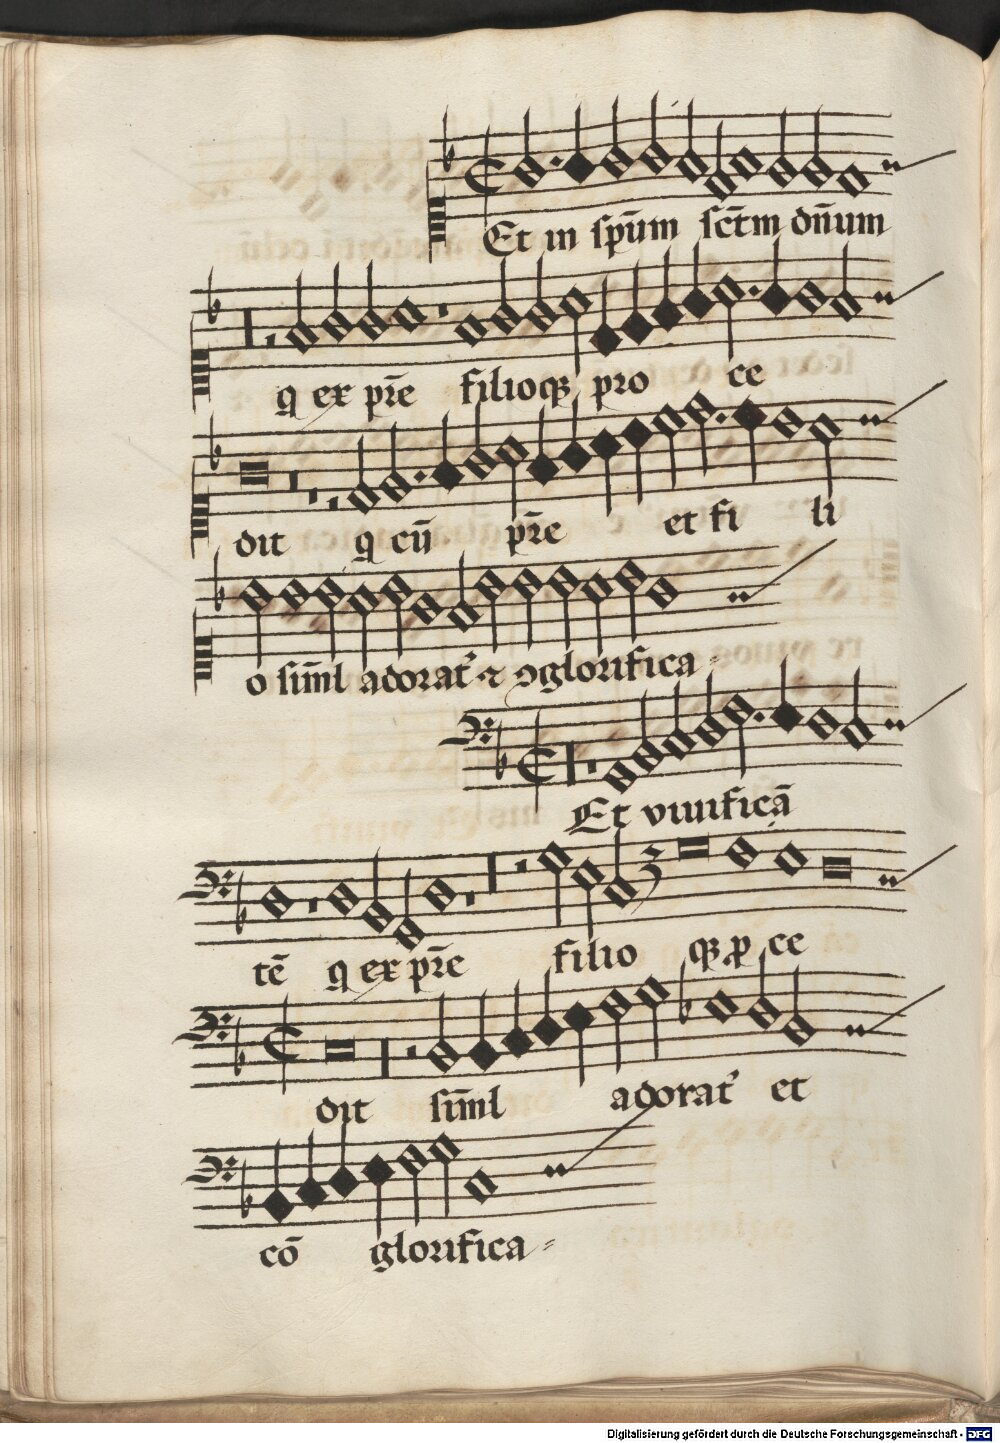 Et in sp̄um sc̄tm dn̄um
q ex pr̄e filioqꝫ pro ce
dit q cū pr̄e et fi li
o sim̄l adorat᾽ ⁊ ꝯglorifica
Et viuificā
tē q ex pr̄e filio qꝫ ꝓ ce
dit sim̄l adorat᾽ et
cō glorifica
Digitalisierung gefördert durch die Deutsche Forschungsgemeinschaft - DFG